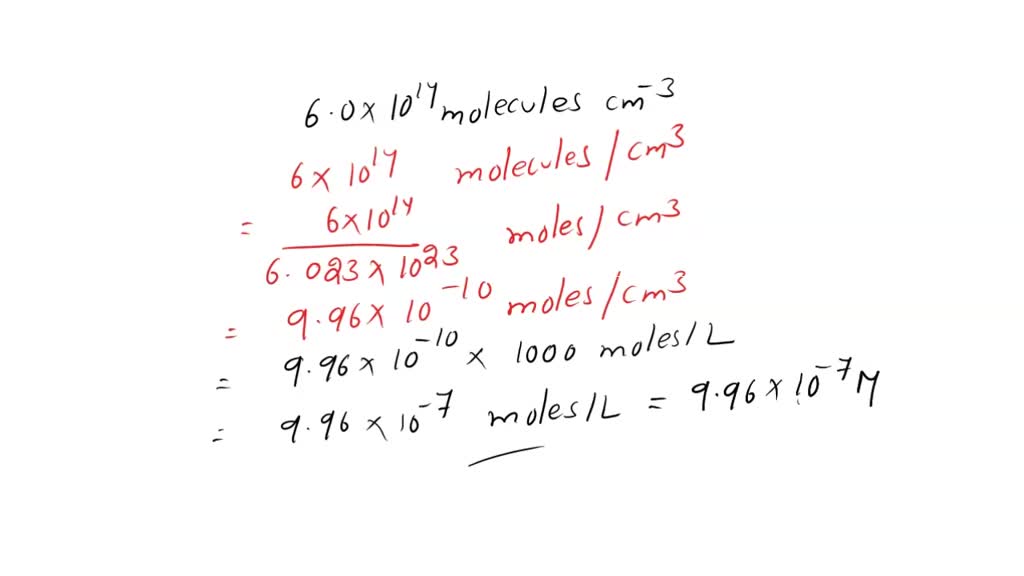 6.0 × 10¹⁴ molecules cm⁻³
6 × 10¹⁴ molecules / cm³
= 6×10¹⁴ / 6.023 × 10²³ moles / cm³
= 9.96 × 10⁻¹⁰ moles / cm³
= 9.96 × 10⁻¹⁰ × 1000 moles / L
= 9.96 × 10⁻⁷ moles / L = 9.96 × 10⁻⁷ M